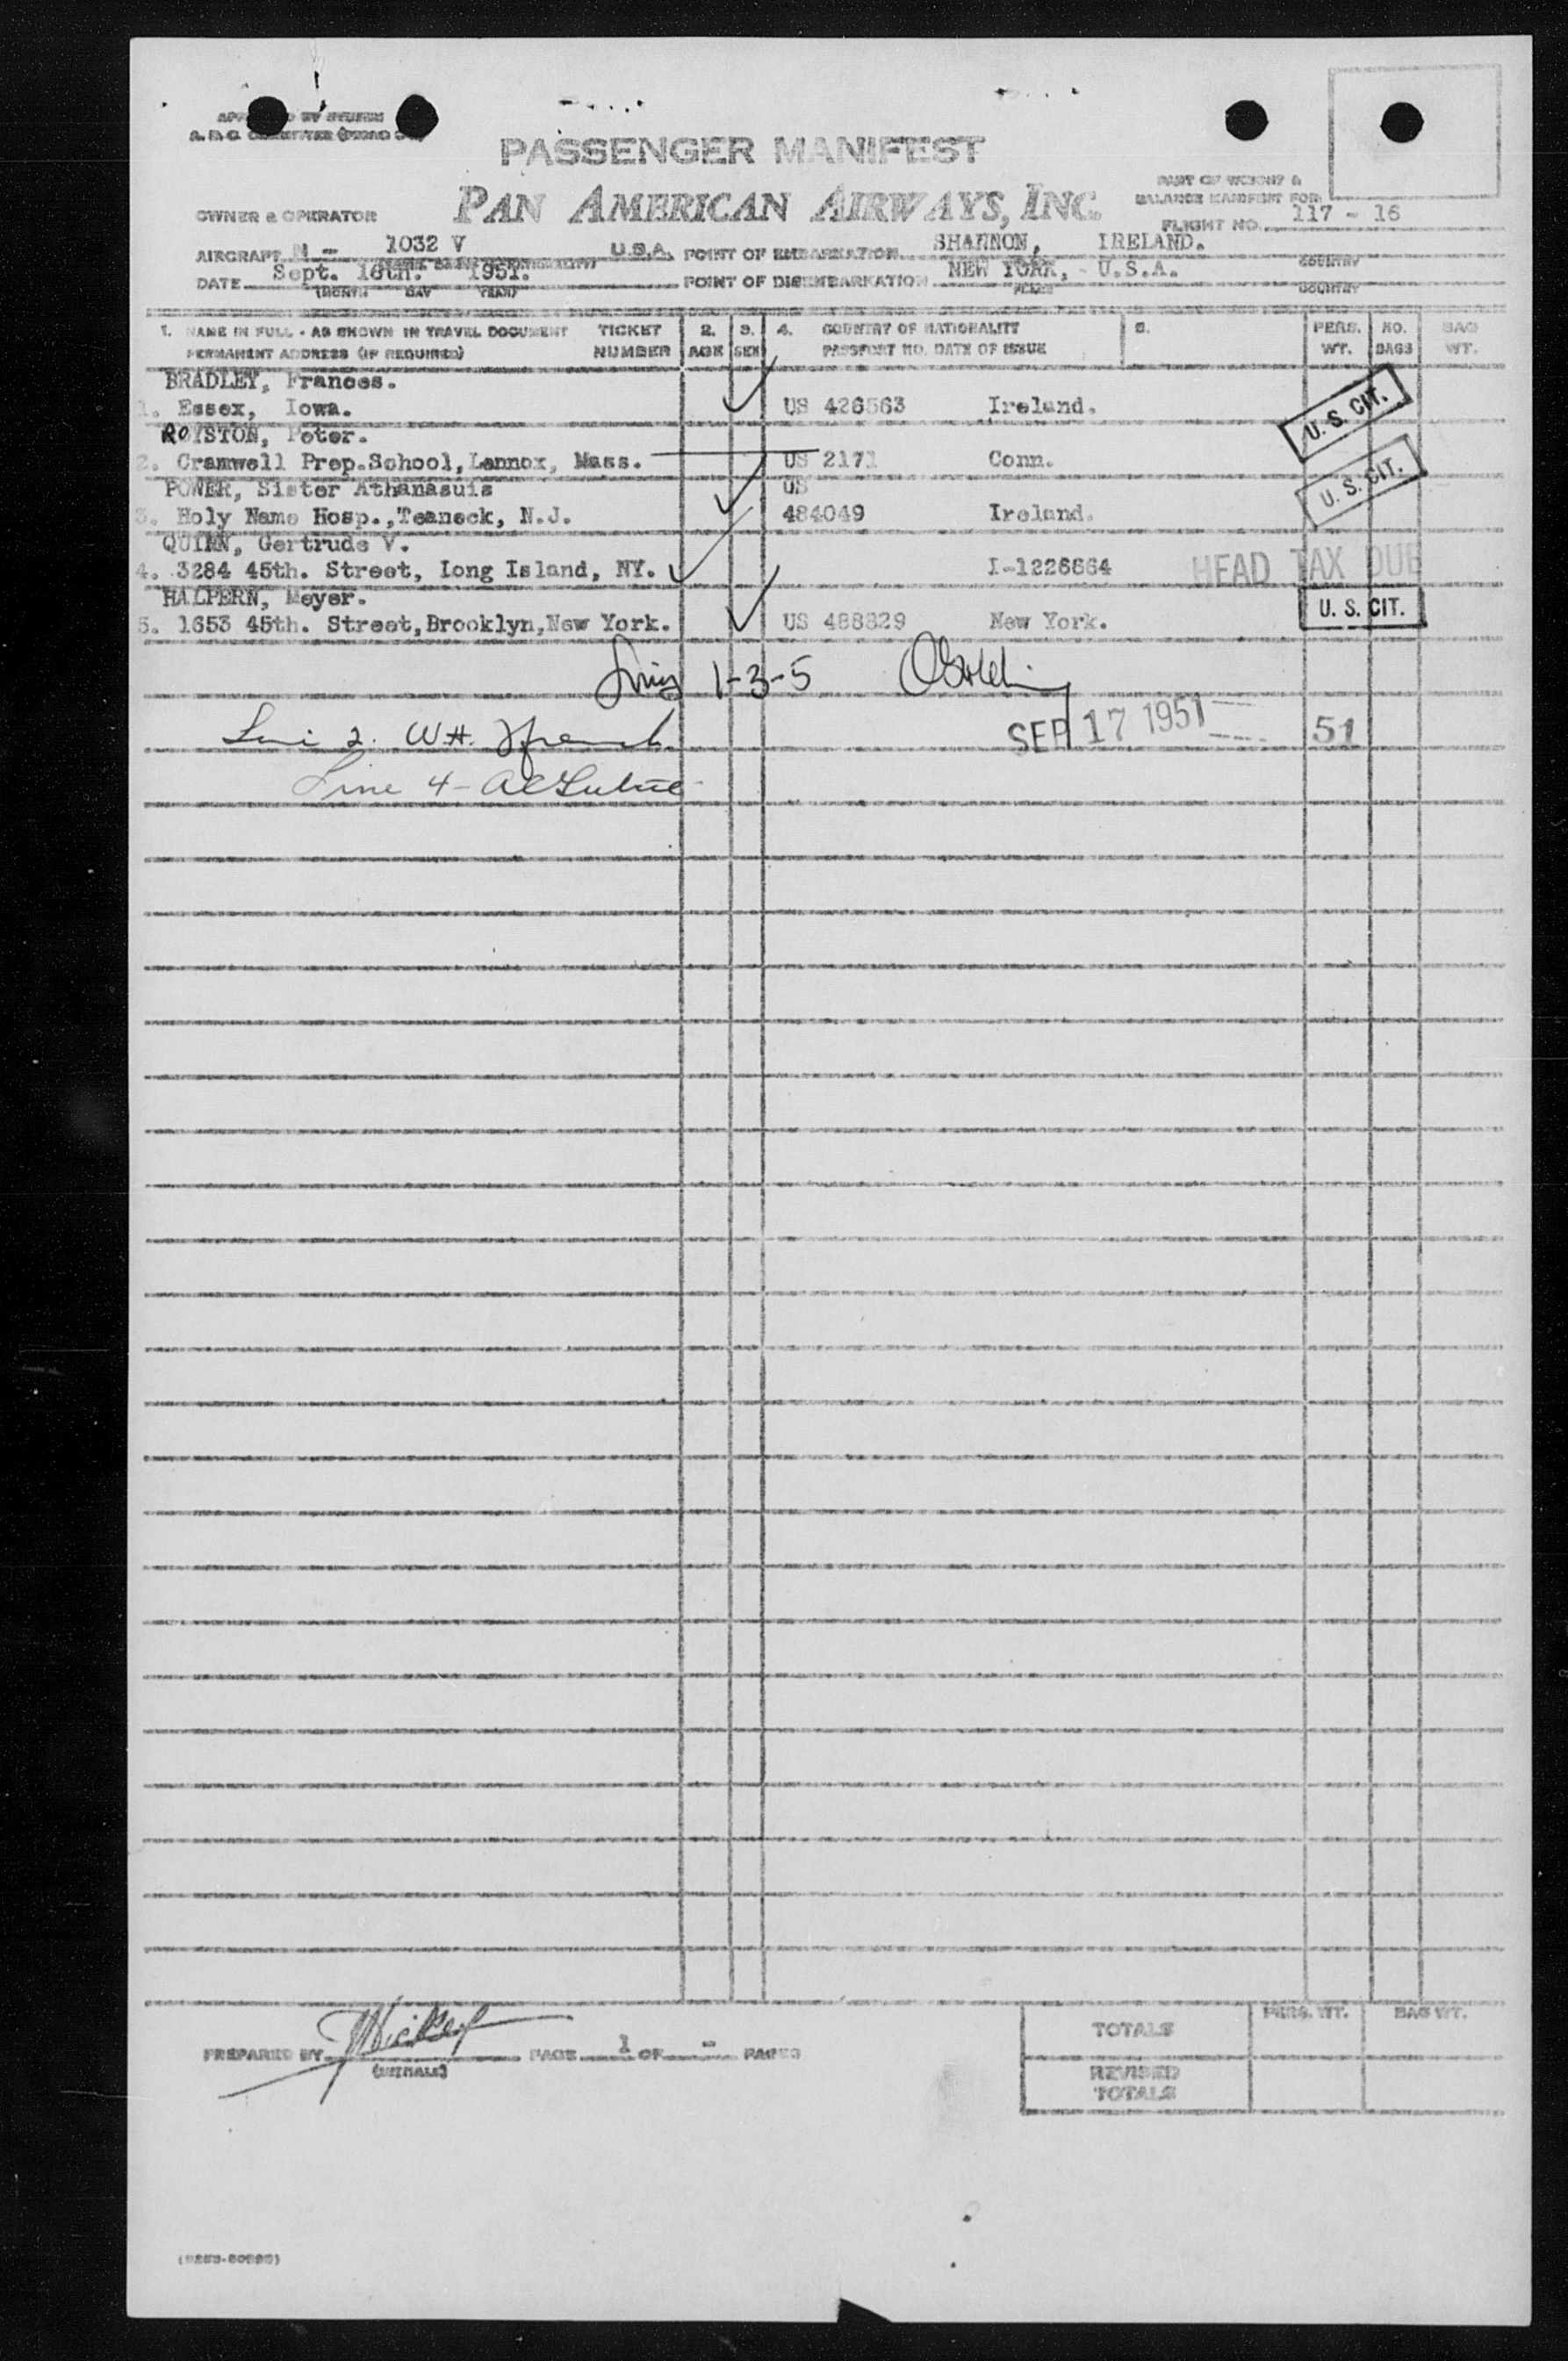 PASSENGER MANIFEST
PAN AMERICAN AIRWAYS, INC.
PART OF WEIGHT &
BALANCE MANIFEST FOR
OWNER & OPERATOR
FLIGHT NO. 117 - 16
AIRCRAFT N - 1032 V U.S.A. POINT OF EMBARKATION SHANNON, IRELAND.
DATE Sept. 16th. 1951. POINT OF DISEMBARKATION NEW YORK, - U.S.A.
(MONTH DAY YEAR) PLACE COUNTRY
1. NAME IN FULL - AS SHOWN IN TRAVEL DOCUMENT TICKET 2. 3. 4. COUNTRY OF NATIONALITY PERS. NO. BAG
PERMANENT ADDRESS (IF REQUIRED) NUMBER AGE SEX PASSPORT NO. DATE OF ISSUE WT. BAGS WT.
BRADLEY, Frances.
1. Essex, Iowa. US 426563 Ireland. U. S. CIT.
ROYSTON, Peter.
2. Cramwell Prep.School, Lennox, Mass. US 2171 Conn. U. S. CIT.
POWER, Sister Athanasuis US
3. Holy Name Hosp.,Teaneck, N.J. 484049 Ireland.
QUINN, Gertrude V.
4. 3284 45th. Street, Long Island, NY. I-1226664 HEAD TAX DUE
HALPERN, Meyer.
5. 1653 45th. Street,Brooklyn,New York. US 488829 New York. U. S. CIT.
1-3-5
SEP 17 1951 51
2. W.H.
Line 4-
PREPARED BY PAGE 1 OF - PAGES
(INITIALS)
PERS. WT. BAG WT.
TOTALS
REVISED
TOTALS